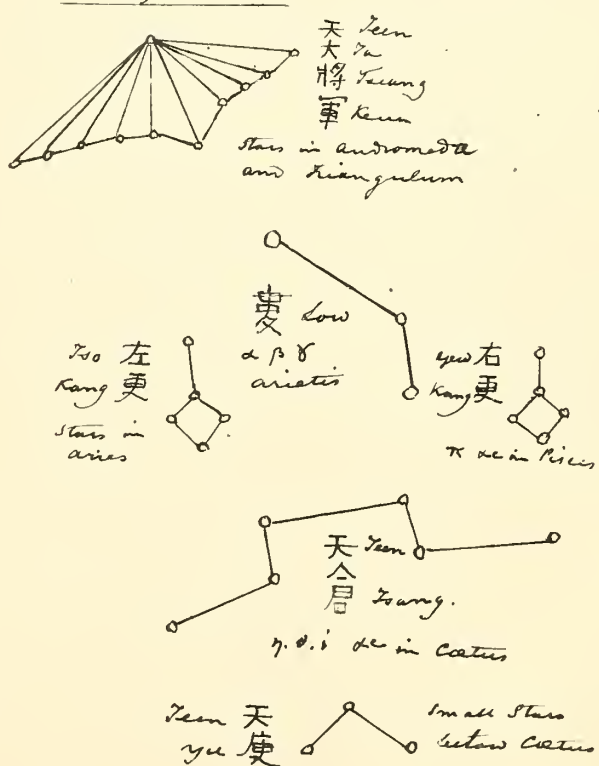 天 Teen
大 Ta
將 Tseang
軍 Keun
Stars in Andromeda
and Triangulum
婁 Low
α β γ
arietis
Tso 左
Kang 更
Stars in
aries
yew 右
Kang 更
π &c in Piscis
天 Teen
倉 Tsang.
η. θ. i &c in Cætus
Teen 天
Yu 庾
Small Stars
below Cætus